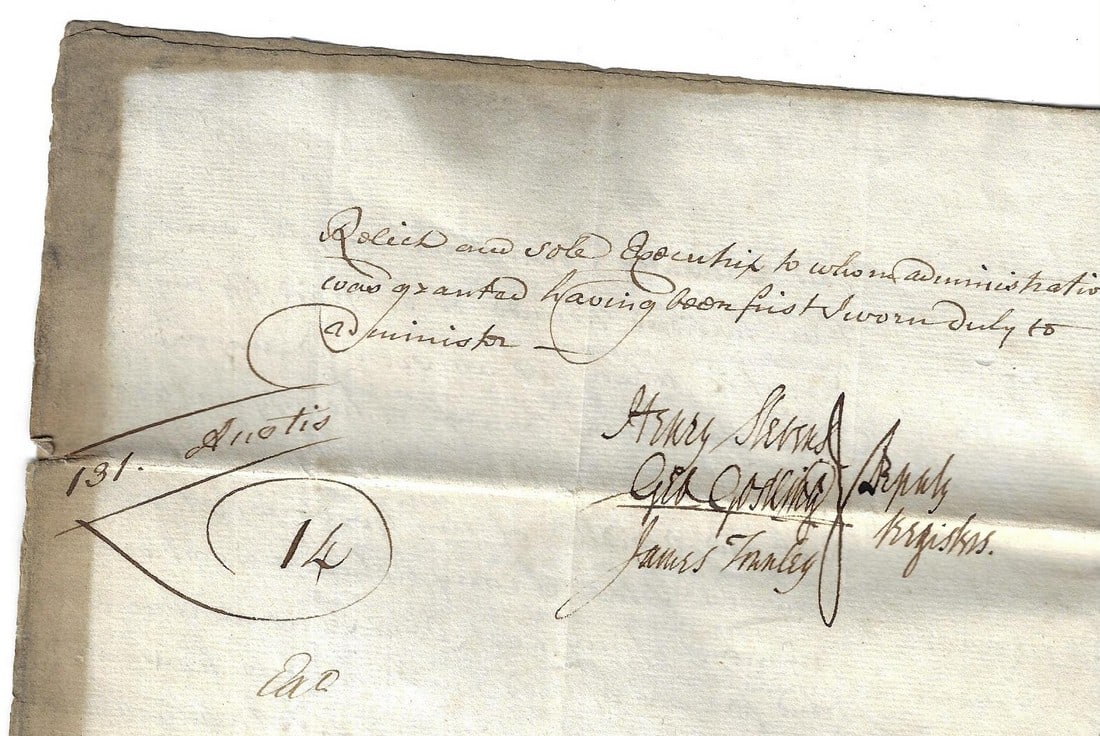 Relict and sole Executrix to whom administratio
was granted having been first Sworn duly to
administer
131. Anstis
14
Henry Stevens
Geo Gostling
James Townley
Deputy
Registers.